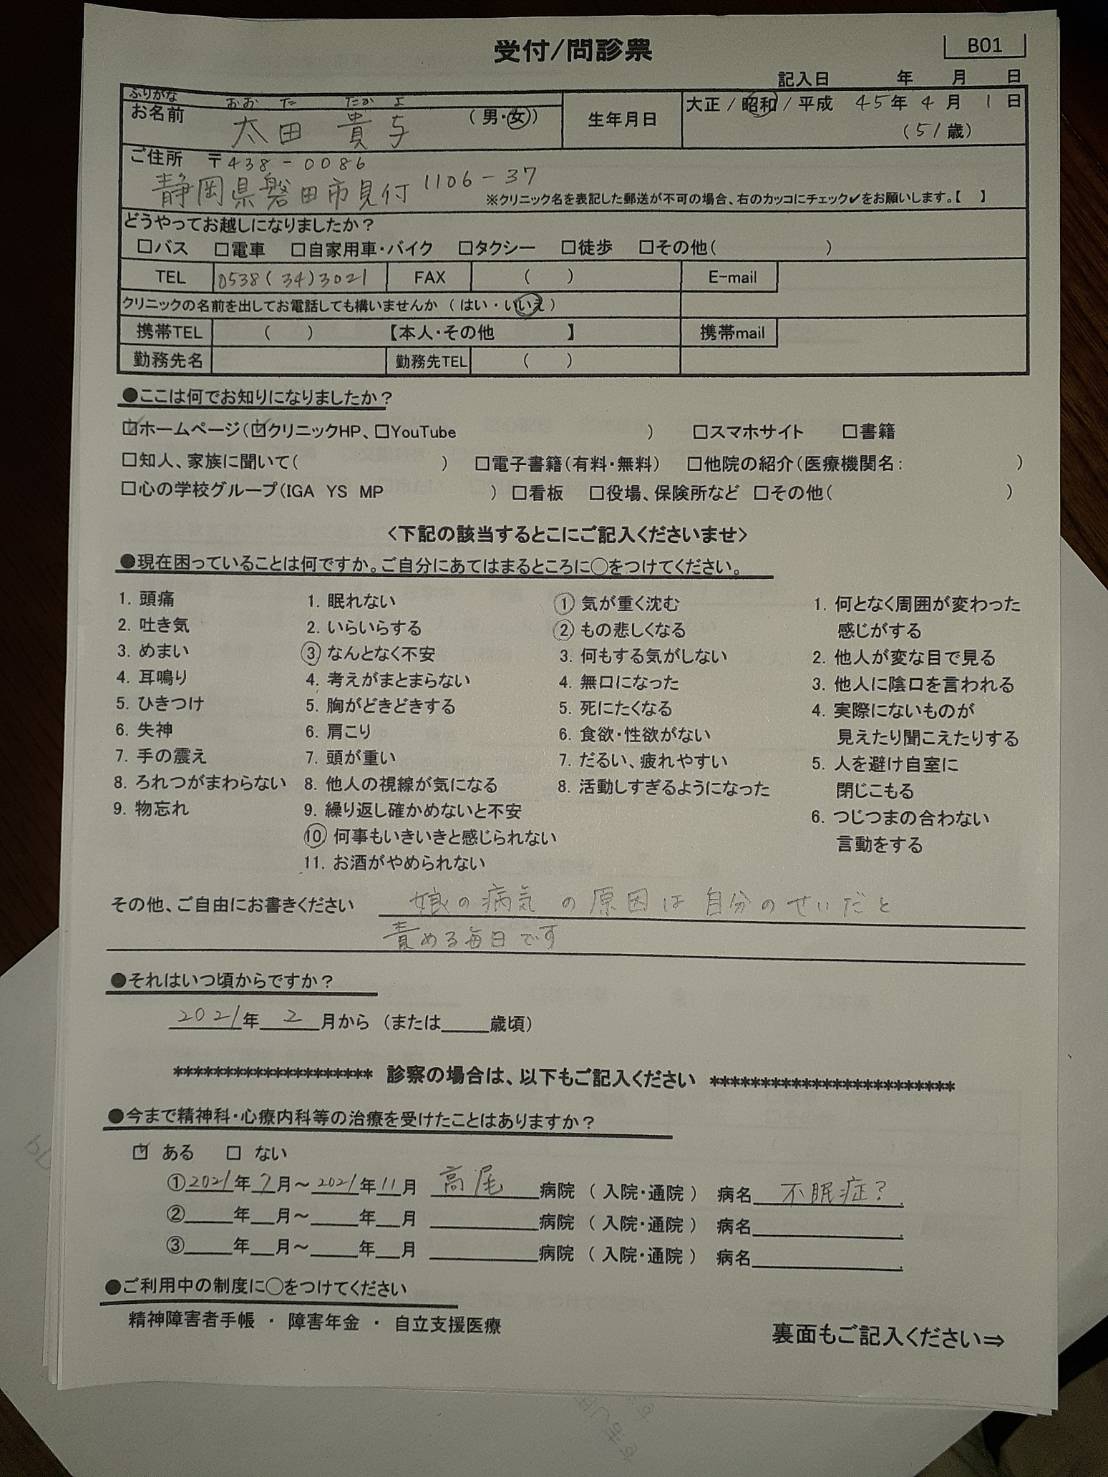 受付/問診票
B01
記入日 年 月 日
ふりがな おお た たか よ
お名前 太田 貴与 (男・女)
生年月日 大正 / 昭和 / 平成 45年 4月 1日
(51歳)
ご住所 〒438-0086
静岡県磐田市見付 1106-37
※クリニック名を表記した郵送が不可の場合、右のカッコにチェック✔をお願いします。【 】
どうやってお越しになりましたか?
□バス □電車 □自家用車・バイク □タクシー □徒歩 □その他( )
TEL 0538(34)3021 FAX ( ) E-mail
クリニックの名前を出してお電話しても構いませんか (はい・いいえ)
携帯TEL ( ) 【本人・その他 】 携帯mail
勤務先名 勤務先TEL ( )
●ここは何でお知りになりましたか?
☑ホームページ(☑クリニックHP、□YouTube ) □スマホサイト □書籍
□知人、家族に聞いて( ) □電子書籍(有料・無料) □他院の紹介(医療機関名: )
□心の学校グループ(IGA YS MP ) □看板 □役場、保険所など □その他( )
<下記の該当するとこにご記入くださいませ>
●現在困っていることは何ですか。ご自分にあてはまるところに○をつけてください。
1. 頭痛
2. 吐き気
3. めまい
4. 耳鳴り
5. ひきつけ
6. 失神
7. 手の震え
8. ろれつがまわらない
9. 物忘れ
1. 眠れない
2. いらいらする
③ なんとなく不安
4. 考えがまとまらない
5. 胸がどきどきする
6. 肩こり
7. 頭が重い
8. 他人の視線が気になる
9. 繰り返し確かめないと不安
⑩ 何事もいきいきと感じられない
11. お酒がやめられない
① 気が重く沈む
② もの悲しくなる
3. 何もする気がしない
4. 無口になった
5. 死にたくなる
6. 食欲・性欲がない
7. だるい、疲れやすい
8. 活動しすぎるようになった
1. 何となく周囲が変わった
感じがする
2. 他人が変な目で見る
3. 他人に陰口を言われる
4. 実際にないものが
見えたり聞こえたりする
5. 人を避け自室に
閉じこもる
6. つじつまの合わない
言動をする
その他、ご自由にお書きください 娘の病気の原因は自分のせいだと
責める毎日です
●それはいつ頃からですか?
2021年 2月から (または 歳頃)
******************** 診察の場合は、以下もご記入ください ************************
●今まで精神科・心療内科等の治療を受けたことはありますか?
☑ ある □ ない
①2021年7月~2021年11月 高尾病院 (入院・通院) 病名 不眠症?
② 年 月~ 年 月 病院 (入院・通院) 病名
③ 年 月~ 年 月 病院 (入院・通院) 病名
●ご利用中の制度に○をつけてください
精神障害者手帳 ・ 障害年金 ・ 自立支援医療
裏面もご記入ください⇒